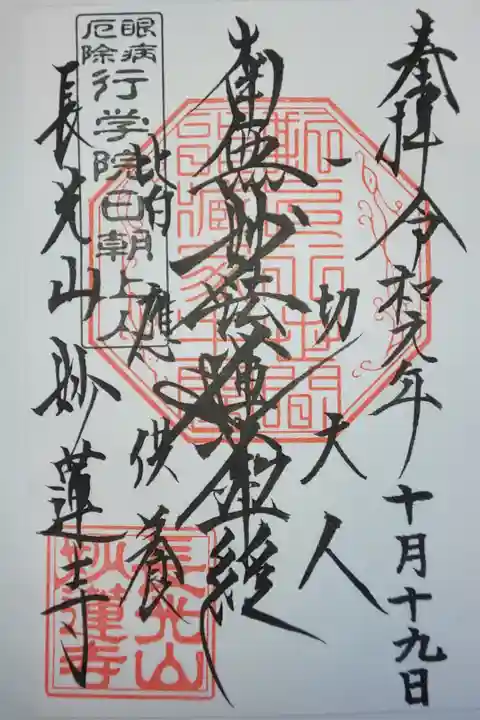 奉拝 令和元年 十月十九日
一切大人
南無妙法蓮華経
皆應供養
長光山妙蓮寺
眼病
厄除
行学院日朝上人
長光山
妙蓮寺